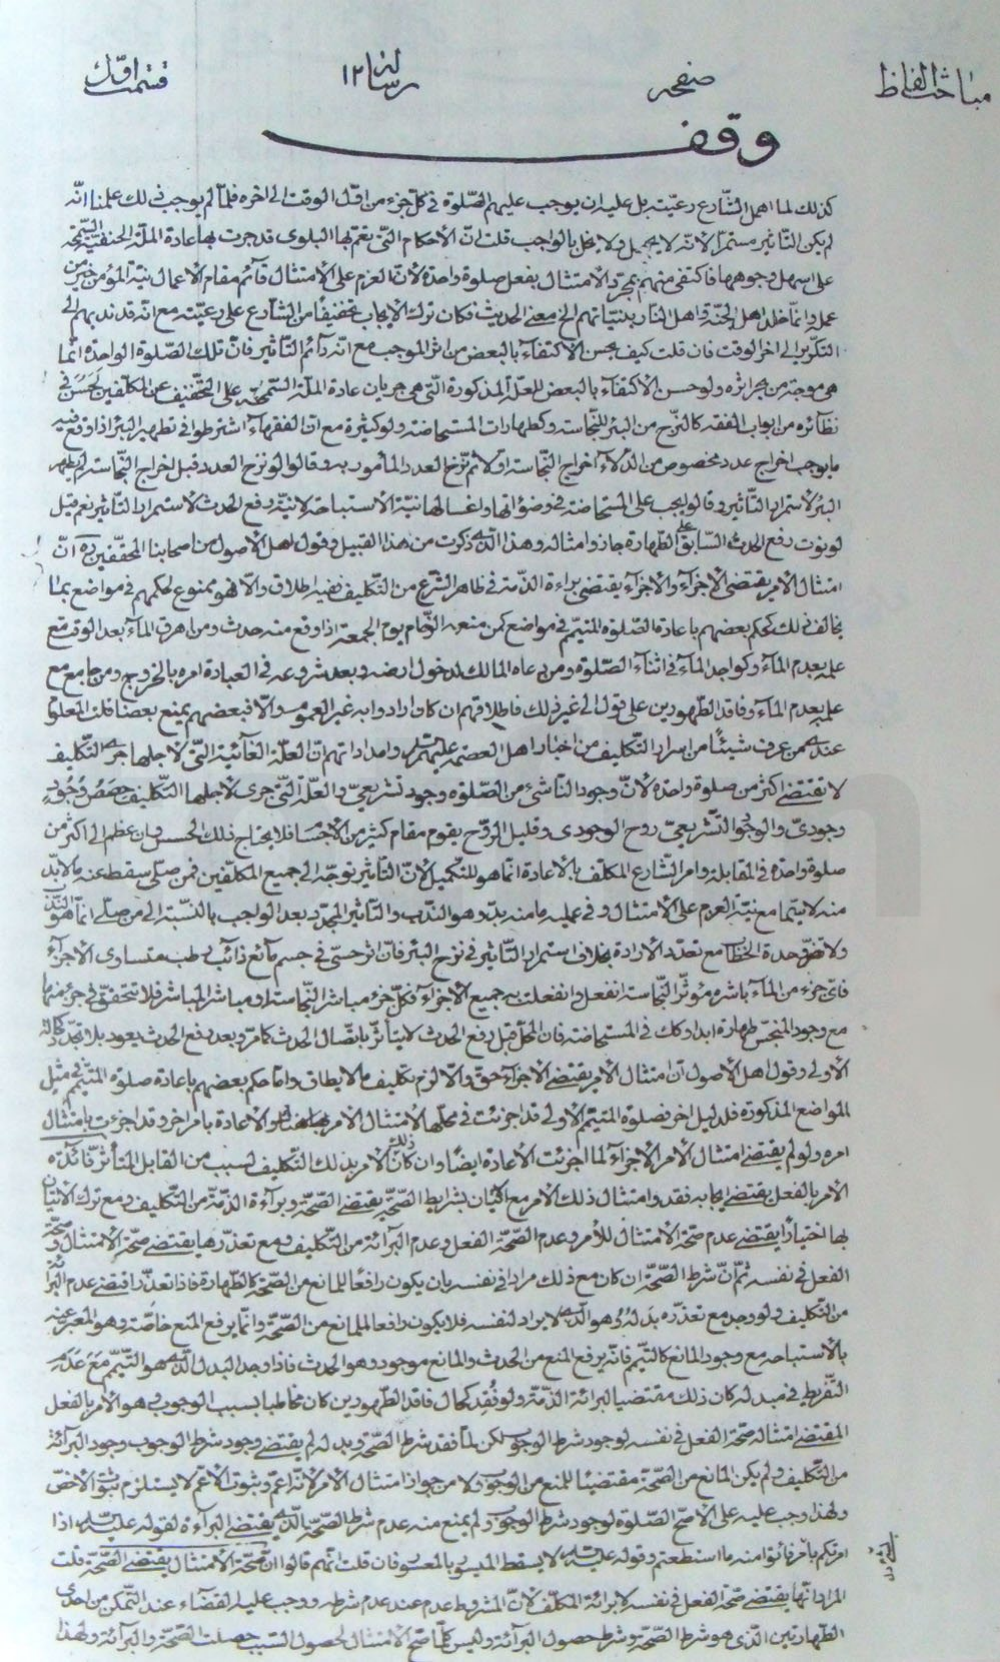 مباحث الفاظ صفحه رساله ١٢ قسمت اول
وقف
كذلك لما اهمل الشّارع رعيّته بل عليه ان يوجب عليهم الصّلوة فى كلّ جزء من اوّل الوقت الى اخره فلمّا لم يوجب ذلك علمنا انّه
لم يكن التّاثير مستمرّا لانّه لا يهمل ولا يخل بالواجب قلت انّ الاحكام التى تعمّ بها البلوى قد جرت بها عادة الملّة الحنفيّة السّمحة
على اسهل وجوهها فاكتفى منهم بمجرّد الامتثال بفعل صلوة واحدة لانّ العزم على الامتثال قائم مقام الاعمال نيّة المؤمن خير من
عمله وانّما خلّد اهل الجنّة واهل النّار بنيّاتهم الخ معنى الحديث فكان ترك الايجاب تخفيفًا من الشّارع على رعيّته مع انّه قد ندبهم الى
التكرير الى اخر الوقت فان قلت كيف يحسن الاكتفآء بالبعض من اثر الموجب مع انّه دآئم التّاثير فانّ تلك الصّلوة الواحدة انّما
هى موجبة من جزاثره ولو حسن الاكتفآء بالبعض للعلّة المذكورة التّى هى جريان عادة الملّة السّمحة على التّخفيف عن المكلّفين لحَسُن فى
نظآئره من ابواب الفقه كالنّزح من البئر للنّجاسة وكطهارات المستحاضة ولو كثيرة مع انّ الفقهآء اشترطوا فى تطهير البئر اذا وقع فيه
ما يوجب اخراج عدد مخصوص من الدّلاء اخراج النّجاسة اوّلا ثم نزح العدد المأمور به وقالوا لو نزح العدد قبل اخراج النّجاسة لم يطهر
البئر لاستمرار التّاثير وقالوا يجب على المستحاضة فى وضوئها واغسالها نيّة الاستباحة لا نيّة رفع الحدث لاستمرار التّاثير نعم قيل
لو نوت رفع الحدث السّابق على الطّهارة جاز وامثاله وهذا الّذى ذكرت من هذا القبيل وقول اهل الاصول من اصحابنا المحقّقين ره انّ
امتثال الامر يقتضى الاجزآء والاجزآء يقتضى براءة الذّمة فى ظاهر الشّرع من التّكليف فيه اطلاق والا فهو ممنوع لحكمهم فى مواضع بما
يخالف ذلك كحكم بعضهم باعادة الصّلوة للمتيمّم فى مواضع كمن منعه الزّحام يوم الجمعة اذا وقع منه حدث ومن اهرق المآء بعد الوقت مع
علمه بعدم المآء وكواجد المآء فى اثنآء الصّلوة ومن دعاه المالك لدخول ارضه وبعد شروعه فى العبادة امره بالخروج ومن جامع مع
علمه بعدم المآء وفاقد الطّهورين على قول الى غير ذلك فاطلاقهم ان كا وارادوا به غير العموم والّا فبعضهم يمنع بعضا قلت المعلوم
عند من عرف شيئًا من اسرار التّكليف من اخبار اهل العصمة عليهم السّلم وامداداتهم انّ العلّة الغآئيّة التّى لاجلها جرى التّكليف
لا تقتضى اكثر من صلوة واحدة لانّ وجود النّاشى من الصّلوة وجود تشريعىّ والعلّة الّتى جرى لاجلها التّكليف حصص وُجُود
وجودىّ والوجود التّشريعىّ روح الوجودى وقليل الرّوح يقوم مقام كثير من الاجسا فلا يحتاج ذلك الحسن وان عظم الى اكثر من
صلوة واحدة فى المقابلة وامر الشّارع المكلّف بالاعادة انّما هو للتكميل لانّ التّاثير توجّه الى جميع المكلّفين فمن صلّى سقط عنه ما لا بدّ
منه لا سيّما مع نيّة العزم على الامتثال وفى عمليه ما منه بدّ وهو النّدب والتّاثير المتجدّد بعد الواجب بالنّسبة الى من صلّى انّما هو النّدب
ولا تضرّ وحدة الخطا مع تعدّد الارادة بخلاف استمرار التّاثير فى نزح البئر فانّه اثر حسّى فى جسم مآئع ذآئب رطب متساوى الاجزآء
فاىّ جزء من المآء باشره مؤثّر النّجاسة انفعل وانفعلت به جميع الاجزآء فكلّ جزء مباشر النّجاسة او مباشر المباشر فلا تتحقّق فى جزء منها
مع وجود المنجّس طهارة ابدا وكك فى المستحاضة فان المحلّ قبل رفع الحدث لا يتأثّر باتّصال الحدث كما مرّ وبعد رفع الحدث يعود بلا تجدّد كالّه
الاولى وقول اهل الاصول انّ امتثال الامر يقتضى الاجزآء حقّ والّا لزم تكليف ما لا يطاق وامّا حكم بعضهم باعادة صلوة المتيمّم فى مثل
المواضع المذكورة فلدليل اخر فصلوة المتيمّم الاولى قد اجزئت فى محلّها لامتثال الامر بها الاعادة بامر اخر وقد اجزءت بامتثال
امره ولو لم يقتضى امتثال الأمر الاجزآء لما اجزئت الاعادة ايضًا وان كان الامر بذلك التّكليف لسبب من القابل المتأثّر فآئدة
الامر بالفعل يقتضى ايجابه فقد وامتثال ذلك الامر مع اتيان بشرايط الصّحّة يقتضى الصّحّة وبراءة الذّمّة من التّكليف ومع ترك الاتيان
بها اختيارًا يقتضى عدم صحّة الامتثال للأمر وعدم الصّحّة الفعل وعدم البرآئة من التّكليف ومع تعذّرها يقتضى صحّة الامتثال وصحّة
الفعل فى نفسه ثمّ انّ شرط الصّحّة ان كان مع ذلك مرادا فى نفسه بان يكون رافعًا للمانع من الصّحّة كالطّهارة فاذا تعذّر اقتضى عدم البرآئة
من التّكليف ولو وجد مع تعذّره بدَلهُ وهو الّذى لا يراد لنفسه فلا يكون رافعا للمانع من الصّحّة وانّما يرفع المنع خاصّة وهو المعبّر عنه
بالاستباحه مع وجود المانع كالتّيمّم فانّه يرفع المنع من الحدث والمانع موجود وهو الحدث فاذا وجد البدل الّذى هو التّيمّم مَعَ عَدَمِ
التّفريط فى مبدله كان ذلك مقتضيا لبرائة الذّمّة ولو فُقِد كحال فاقد الطّهورين كان مخاطبا بسبب الوجوب هو الأمر بالفعل
المقتضى امتثاله صحّة الفعل فى نفسه لوجود شرط الوجوب لكن لمّا فقد شرط الصّحّة وبدله لم يقتضى وجود شرط الوجوب وجود البرآئة
من التّكليف ولم يكن المانع من الصّحّة مقتضيًا للمنع من الوجوب ولا من جواز امتثال الامر لانّه اعمّ وثبوت الاعمّ لا يستلزم ثبوت الاخصّ
ولهذا وجب عليه على الاصحّ الصّلوة لوجود شرط الوجوب ولم يمنع منه عدم شرط الصّحّة الّذى يقتضى البرآءة لقوله عليه السّلم اذا
امرتكم بامر فأتوا منه ما استطعتم وقوله عليه السلم لا يسقط الميسور بالمعسور فان قلت انّهم قالوا انّ صحّة الامتثال يقتضى الصّحّة قلت
المراد انّها يقتضى صحّة الفعل فى نفسه لا برائة المكلّف لانّ المشروط عدم عند عدم شرطه ووجب عليه القضآء عند التّمكّن من احدى
الطّهارتين الّذى هو شرط الصّحّة وشرط حصول البرآئة وليس كلّما صحّ الامتثال لحصول السّبب حصلت الصّحّة والبرآئة ولهذا